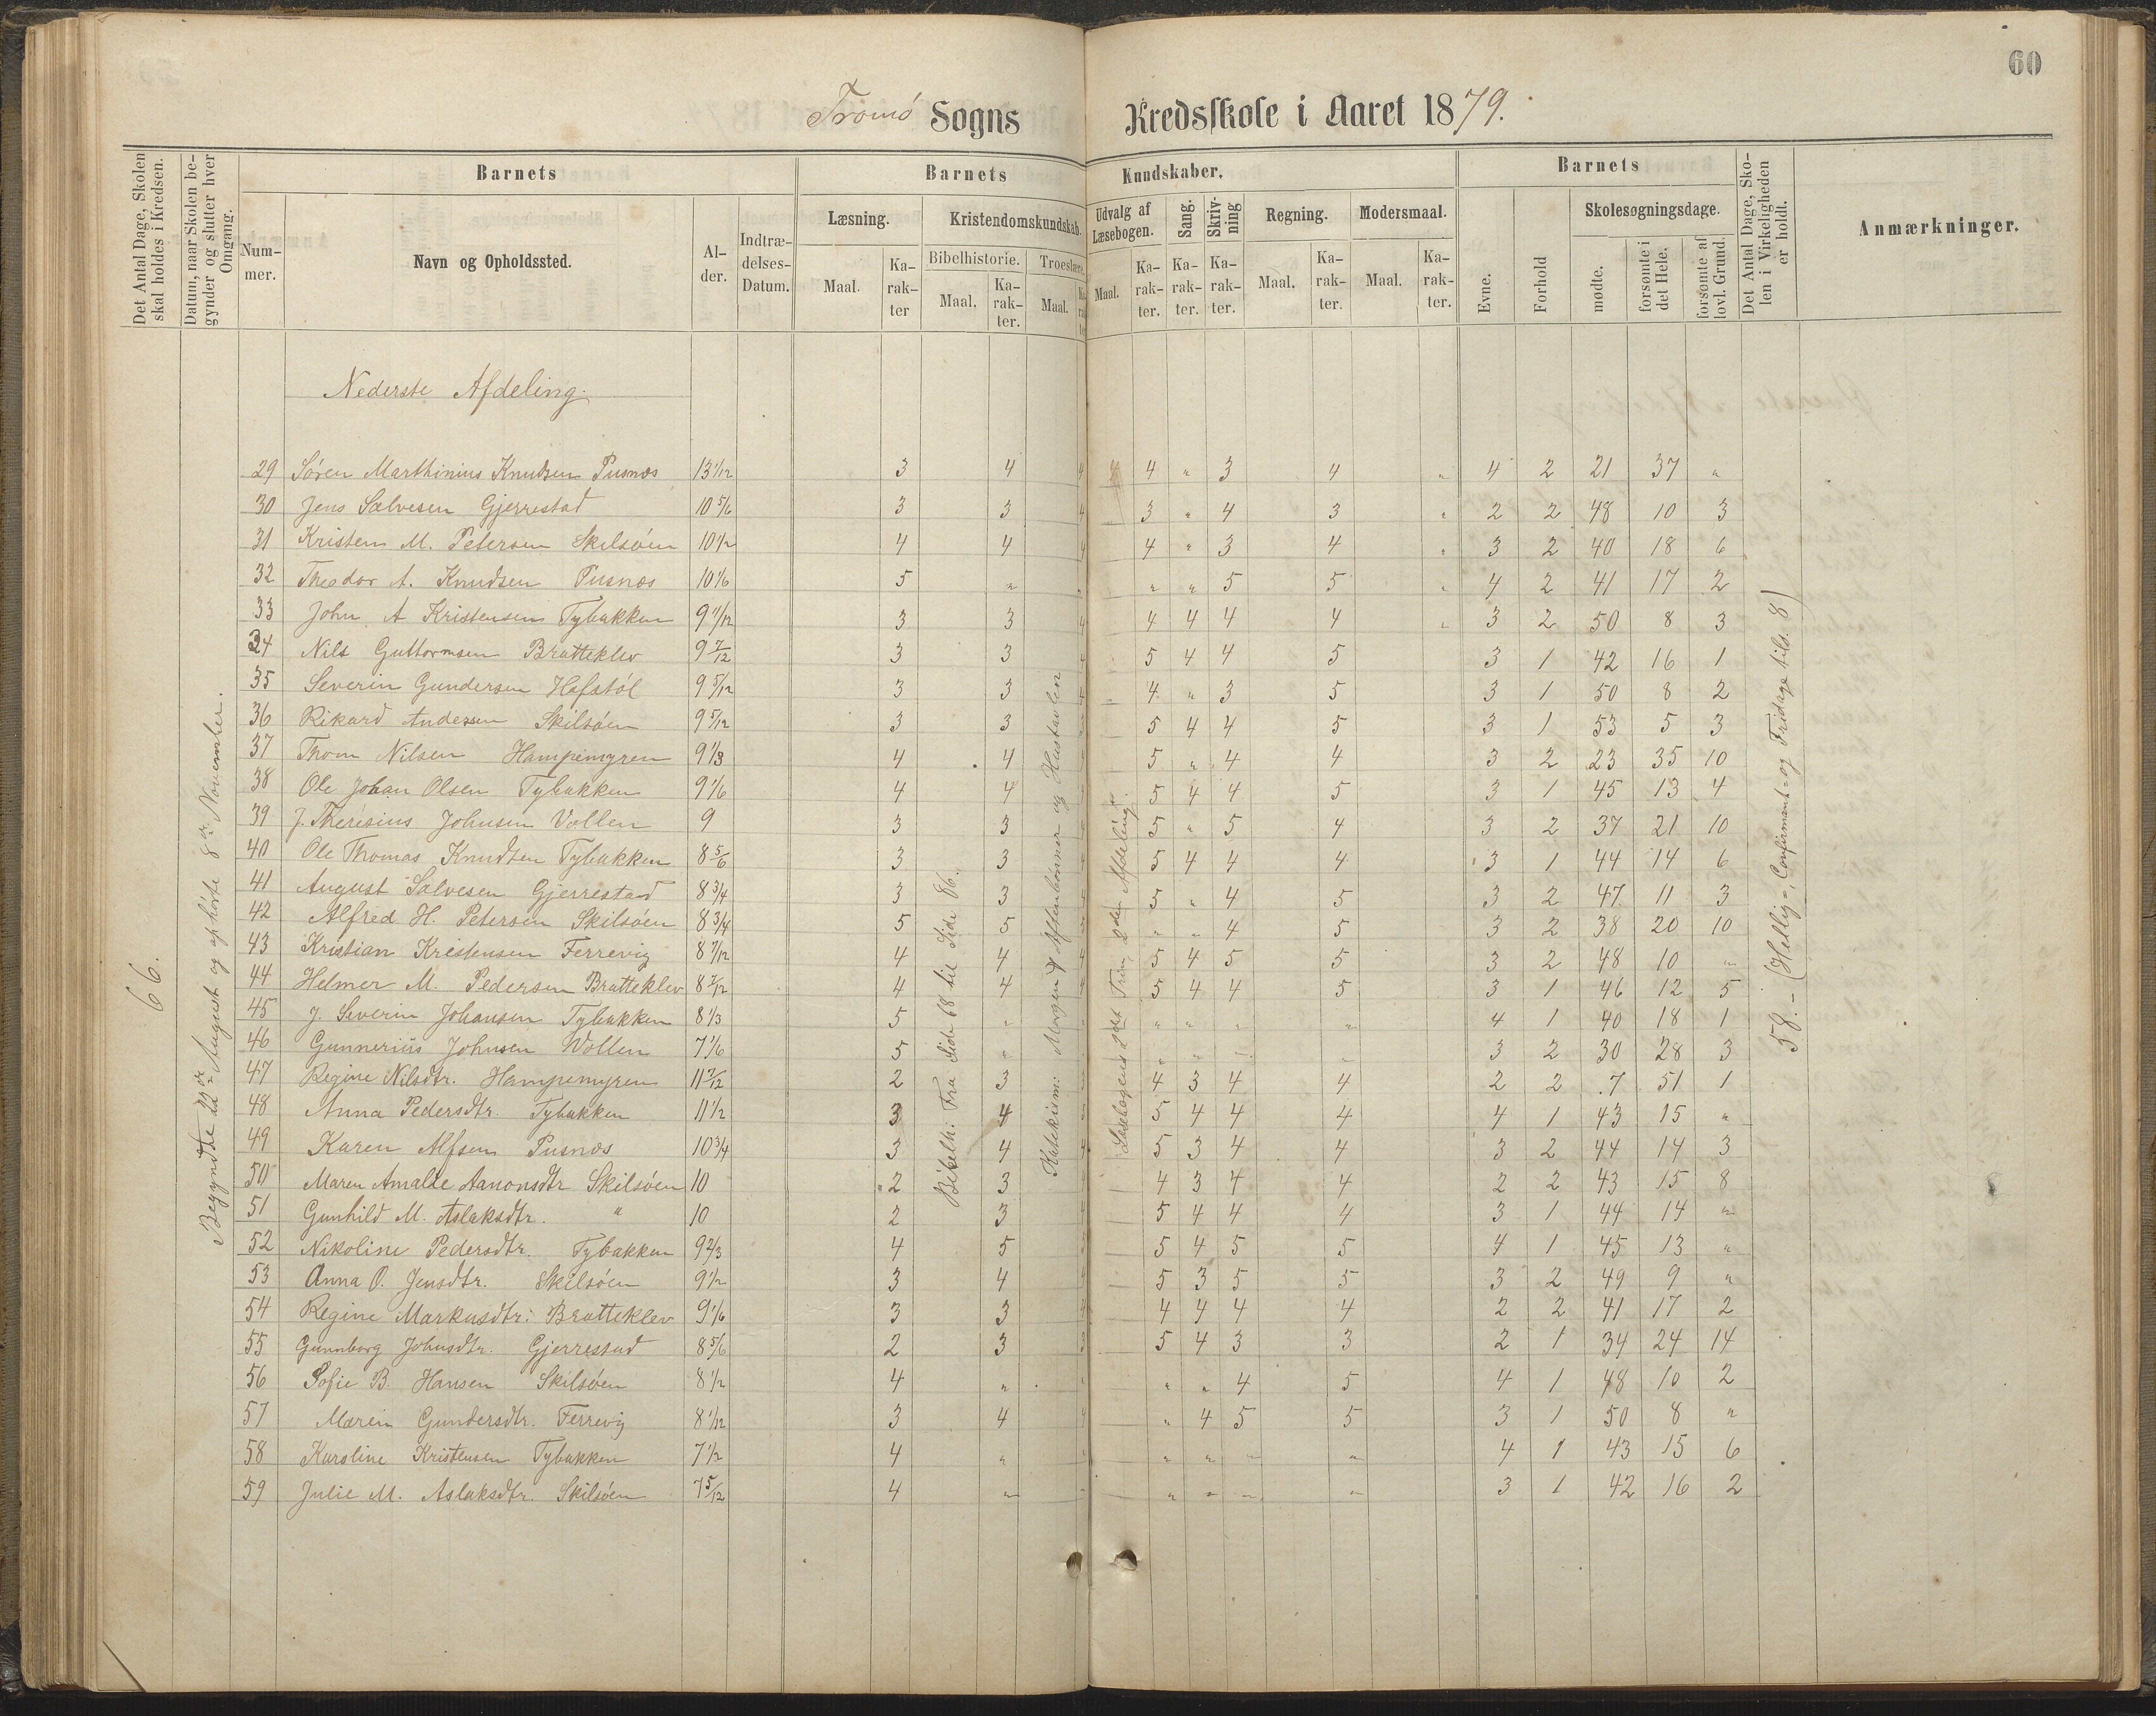 60
Tromø Sogns Kredsskole i Aaret 1879.
Det Antal Dage, Skolen skal holdes i Kredsen.
Datum, naar Skolen begynder og slutter hver Omgang.
Barnets
Nummer.
Navn og Opholdssted.
Alder.
Indtrædelses-Datum.
Barnets Kundskaber.
Læsning.
Maal.
Karakter
Kristendomskundskab.
Bibelhistorie.
Maal.
Karakter.
Troeslære.
Maal.
Karakter
Udvalg af Læsebogen.
Maal.
Karakter.
Sang.
Karakter.
Skrivning
Karakter.
Regning.
Maal.
Karakter.
Modersmaal.
Maal.
Karakter.
Barnets
Evne.
Forhold
Skolesøgningsdage.
mødte.
forsømte i det Hele.
forsømte af lovl. Grund.
Det Antal Dage, Skolen i Virkeligheden er holdt.
Anmærkninger.
66.
Begyndte 22de August og ophørte 8de November.
Bibelh: Fra Side 68 til Side 86.
Katekism: Morgen & Aftenbønner og Hustavlen
Læsebogens 2det Trin, 2den Afdeling.
58.- (Hellig=, Confirmant= og Fridage tils. 8)
Nederste Afdeling.
29 Søren Marthinius Knudsen Pusnæs 13 1/12 3 4 4 4 " 3 4 " 4 2 21 37 "
30 Jens Salvesen Gjerrestad 10 5/6 3 3 4 3 " 4 3 " 2 2 48 10 3
31 Kristen M. Petersen Skilsøen 10 1/2 4 4 4 4 " 3 4 " 3 2 40 18 6
32 Theodor A. Knudsen Pusnæs 10 1/6 5 " " " " 5 5 " 4 2 41 17 2
33 John A Kristensen Tybakken 9 11/12 3 3 4 4 4 4 4 " 3 2 50 8 3
34 Nils Guttormsen Bratteklev 9 7/12 3 3 4 5 4 4 5 3 1 42 16 1
35 Severin Gundersen Hafstøl 9 5/12 3 3 4 4 " 3 5 3 1 50 8 2
36 Rikard Andersen Skilsøen 9 5/12 3 3 5 4 4 5 3 1 53 5 3
37 Thom Nilsen Hampemyren 9 1/3 4 4 5 " 4 4 3 2 23 35 10
38 Ole Johan Olsen Tybakken 9 1/6 4 4 5 4 4 5 3 1 45 13 4
39 J. Therésius Johnsen Vollen 9 3 3 5 " 5 4 3 2 37 21 10
40 Ole Thomas Knudsen Tybakken 8 5/6 3 3 5 4 4 4 3 1 44 14 6
41 August Salvesen Gjerrestad 8 3/4 3 3 5 " 4 5 3 2 47 11 3
42 Alfred H. Petersen Skilsøen 8 3/4 5 5 " " 4 5 3 2 38 20 10
43 Kristian Kristensen Ferrevig 8 7/12 4 4 5 4 5 5 3 2 48 10 "
44 Helmer M. Pedersen Bratteklev 8 7/12 4 4 5 4 4 5 3 1 46 12 5
45 J. Severin Johansen Tybakken 8 1/3 5 " " " " " 4 1 40 18 1
46 Gunnerius Johnsen Wollen 7 1/6 5 " " " " " 3 2 30 28 3
47 Regine Nilsdtr. Hampemyren 11 7/12 2 3 4 3 4 4 2 2 7 51 1
48 Anna Pedersdtr. Tybakken 11 1/2 3 4 5 4 4 4 4 1 43 15 "
49 Karen Alfsen Pusnæs 10 3/4 3 4 4 5 3 4 4 3 2 44 14 3
50 Maren Amalie Aanonsdtr Skilsøen 10 2 3 4 3 4 4 2 2 43 15 8
51 Gunhild M. Aslaksdtr. " 10 2 3 5 4 4 4 3 1 44 14 "
52 Nikoline Pedersdtr. Tybakken 9 2/3 4 5 5 4 5 5 4 1 45 13 "
53 Anna O. Jensdtr. Skilsøen 9 1/2 3 4 4 5 3 5 5 3 2 49 9 "
54 Regine Markusdtr. Bratteklev 9 1/6 3 3 4 4 4 4 4 2 2 41 17 2
55 Gunnborg Johnsdtr. Gjerrestad 8 5/6 2 3 3 5 4 3 3 2 1 34 24 14
56 Sofie B. Hansen Skilsøen 8 1/2 4 " " " " 4 5 4 1 48 10 2
57 Maren Gundersdtr. Ferrevig 8 1/12 3 4 4 " 4 5 5 3 1 50 8 "
58 Karoline Kristensen Tybakken 7 1/2 4 " " " " " " 4 1 43 15 6
59 Julie M. Aslaksdtr. Skilsøen 7 5/12 4 " " " " " " 3 1 42 16 2